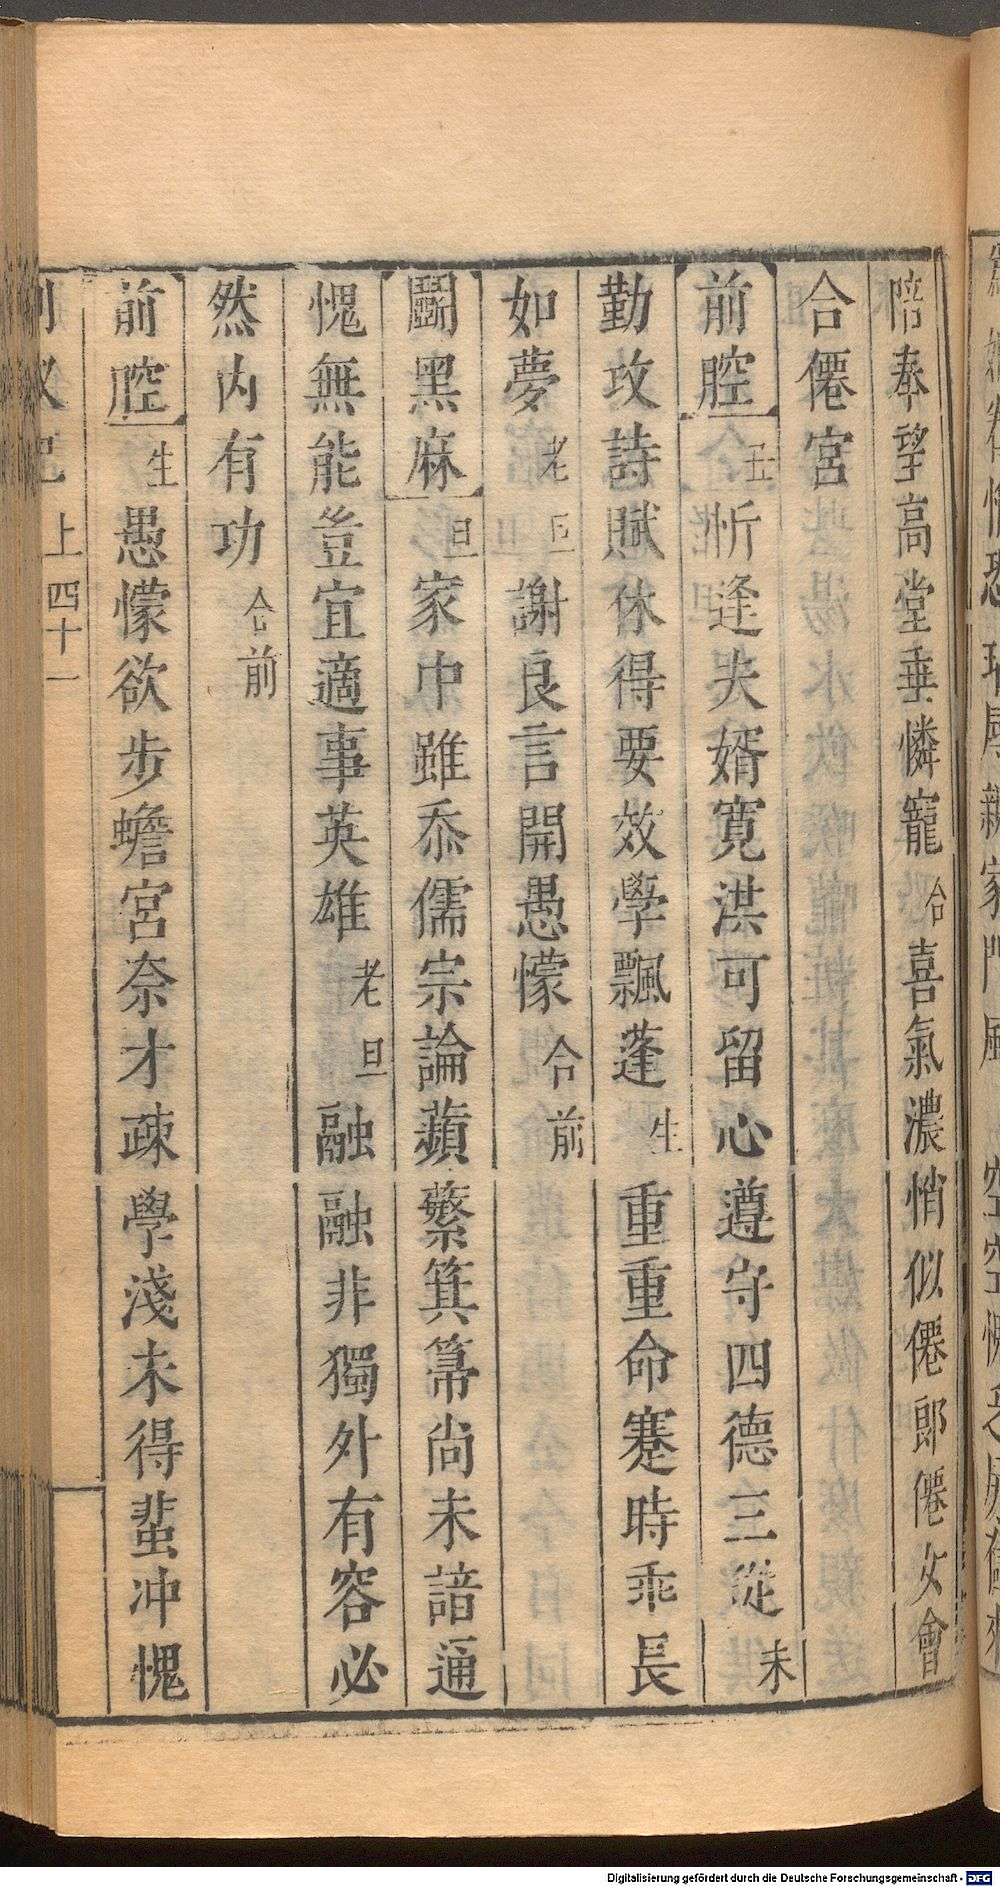 陪奉望高堂垂憐寵合喜氣濃悄似僊郞僊女會
合僊宮
前腔丑忻逢夫婿寛洪可留心遵守四德三從末
勤攻詩賦休得要效學飄蓬生重重命蹇時乖長
如夢老旦謝良言開愚懞合前
鬭黑麻旦家中雖忝儒宗論蘋蘩箕箒尚未諳通
愧無能豈宜適事英雄老旦融融非獨外有容必
然内有功合前
前腔生愚懞欲步蟾宮奈才疎學淺未得蜚冲愧
上四十一
Digitalisierung gefördert durch die Deutsche Forschungsgemeinschaft - DFG